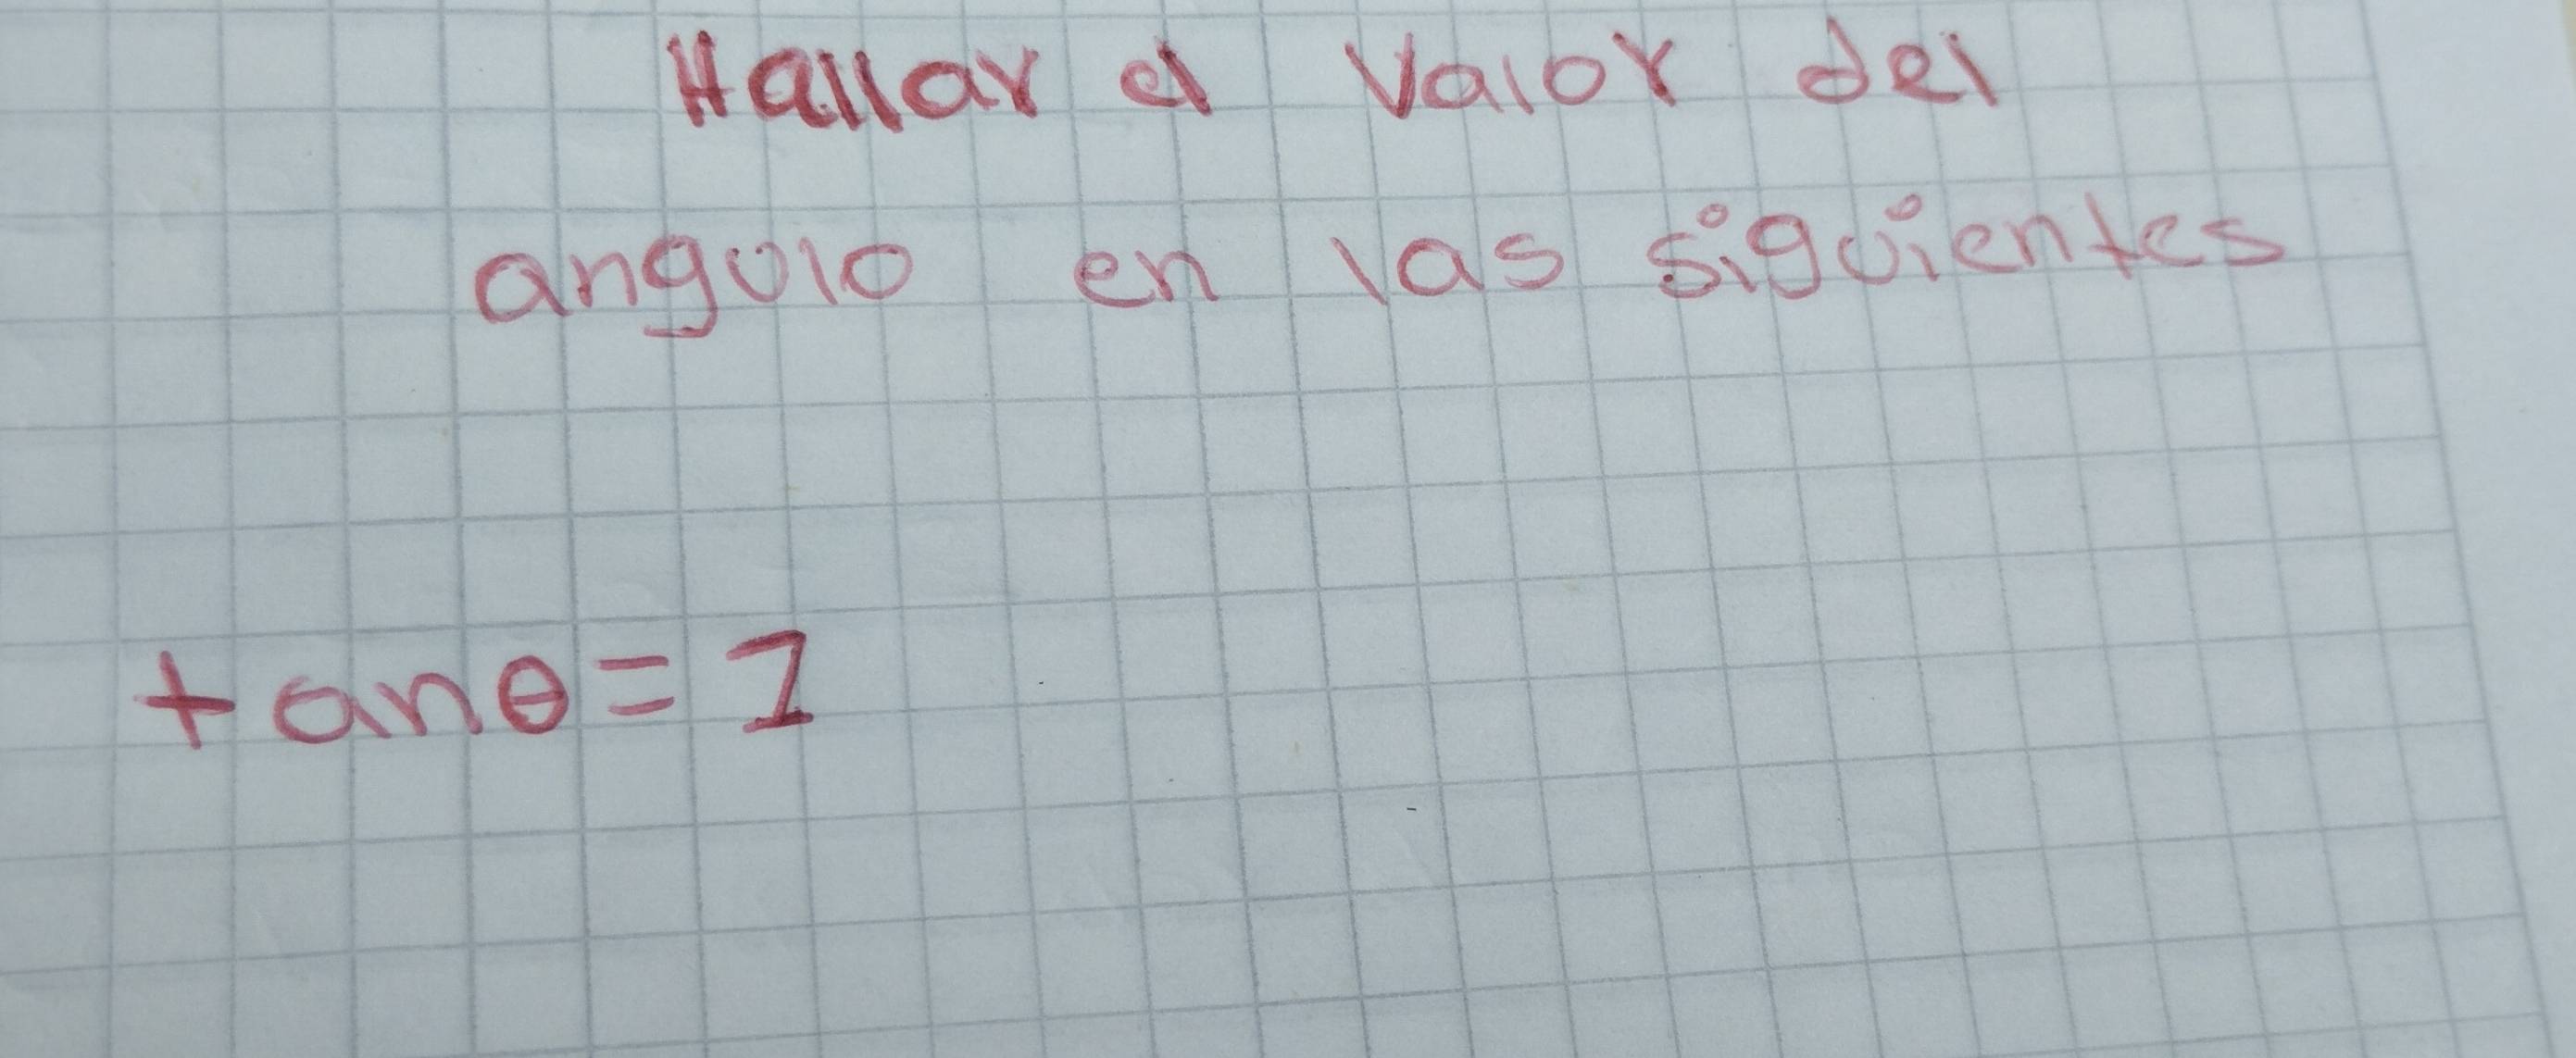 Hallar el valor del
angulo en las siguientes
tanθ = 1